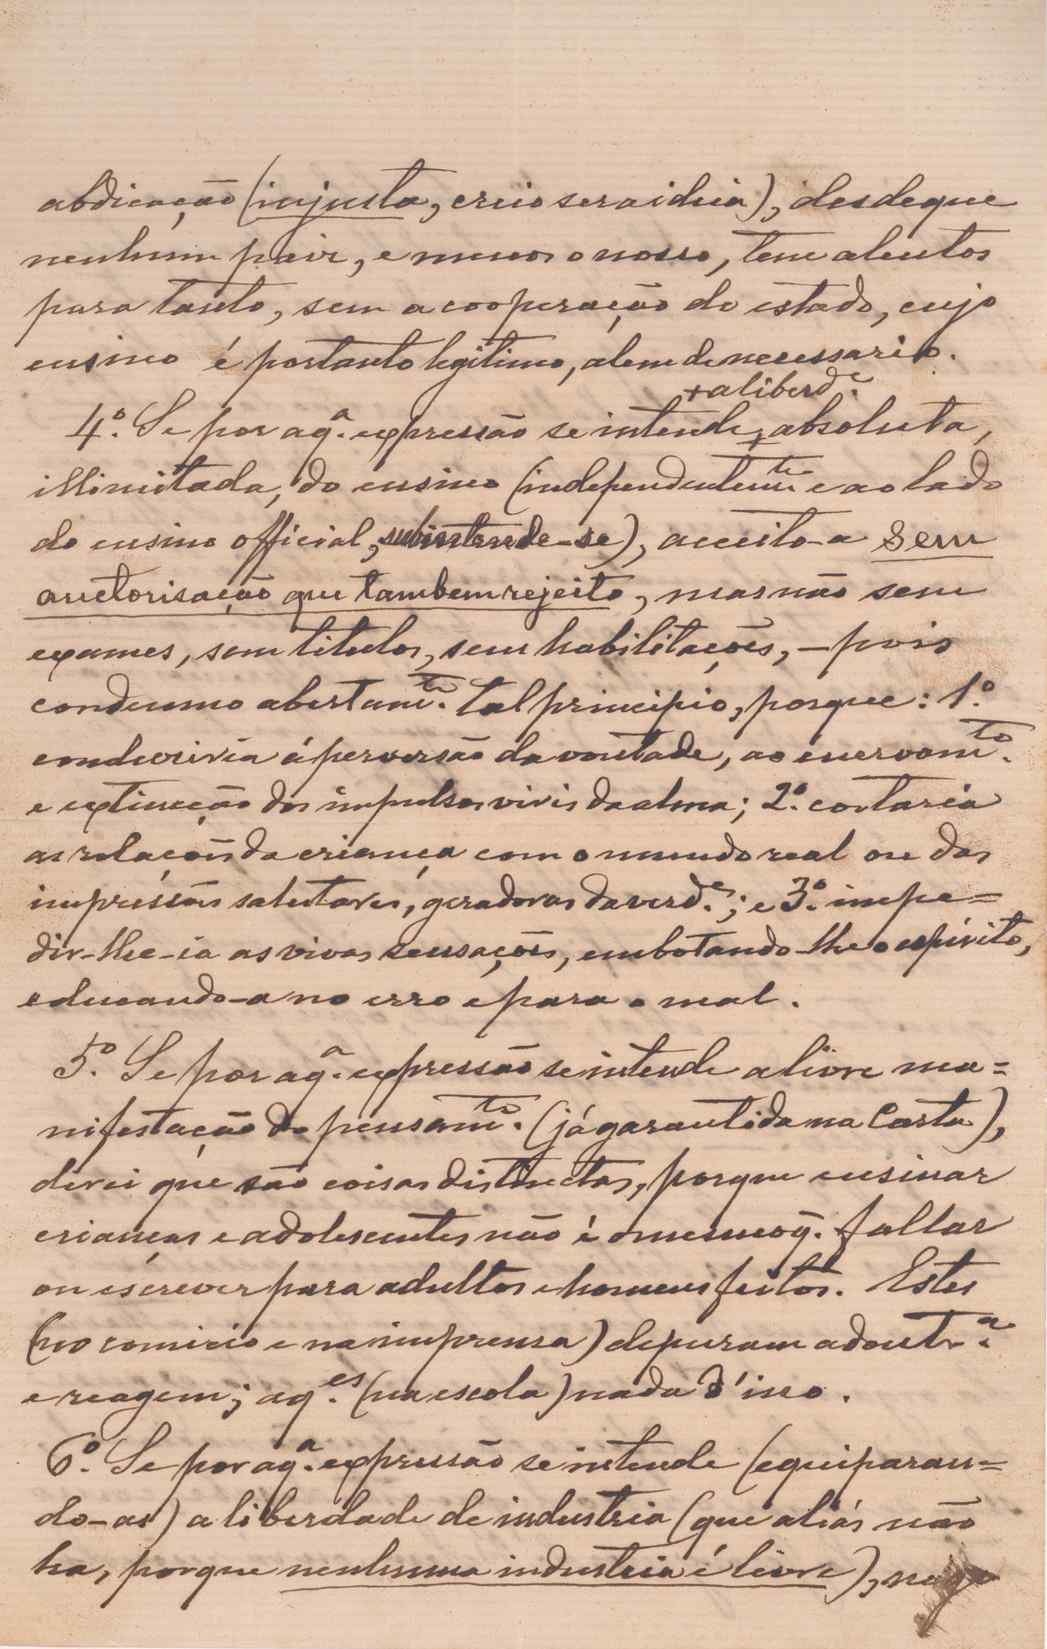 abdicação (injusta, creio ser a ideia), desde que
nenhum paiz, e menos o nosso, tem alentos
para tanto, sem a cooperação do estado, cujo
ensino é portanto legitimo, alem de necessario.
+ a liberd.e
4.º Se por aq.a expressão se intende + absoluta,
illimitada, do ensino (independentem.te e ao lado
do ensino official, subintende-se), acceito-a sem
auctorisação que tambem rejeito, mas não sem
exames, sem titulos, sem habilitações, — pois
condemno abertam.te tal principio, porque: 1.º
conduziria á perversão da vontade, ao enervam.to
e extincção dos impulsos vivis da alma; 2.º cortaria
as relações da criança com o mundo real ou das
impressões salutares, geradoras da verd.e; e 3.º impe=
dir-lhe-ia as vivas sensações, embotando-lhe o espirito,
educando-a no erro e para o mal.
5.º Se por aq.a expressão se intende a livre ma=
nifestação do pensam.to (já garantida na Carta),
direi que são coisas distinctas, porque ensinar
crianças e adolescentes não é o mesmo q. fallar
ou escrever para adultos e homens feitos. Estes
(no comicio e na imprensa) depuram a doutr.a
e reagem; aq.es (na escola) nada d'isso.
6.º Se por aq.a expressão se intende (equiparan=
do-as) a liberdade de industria (que aliás não
ha, porque nenhuma industria é livre), nego